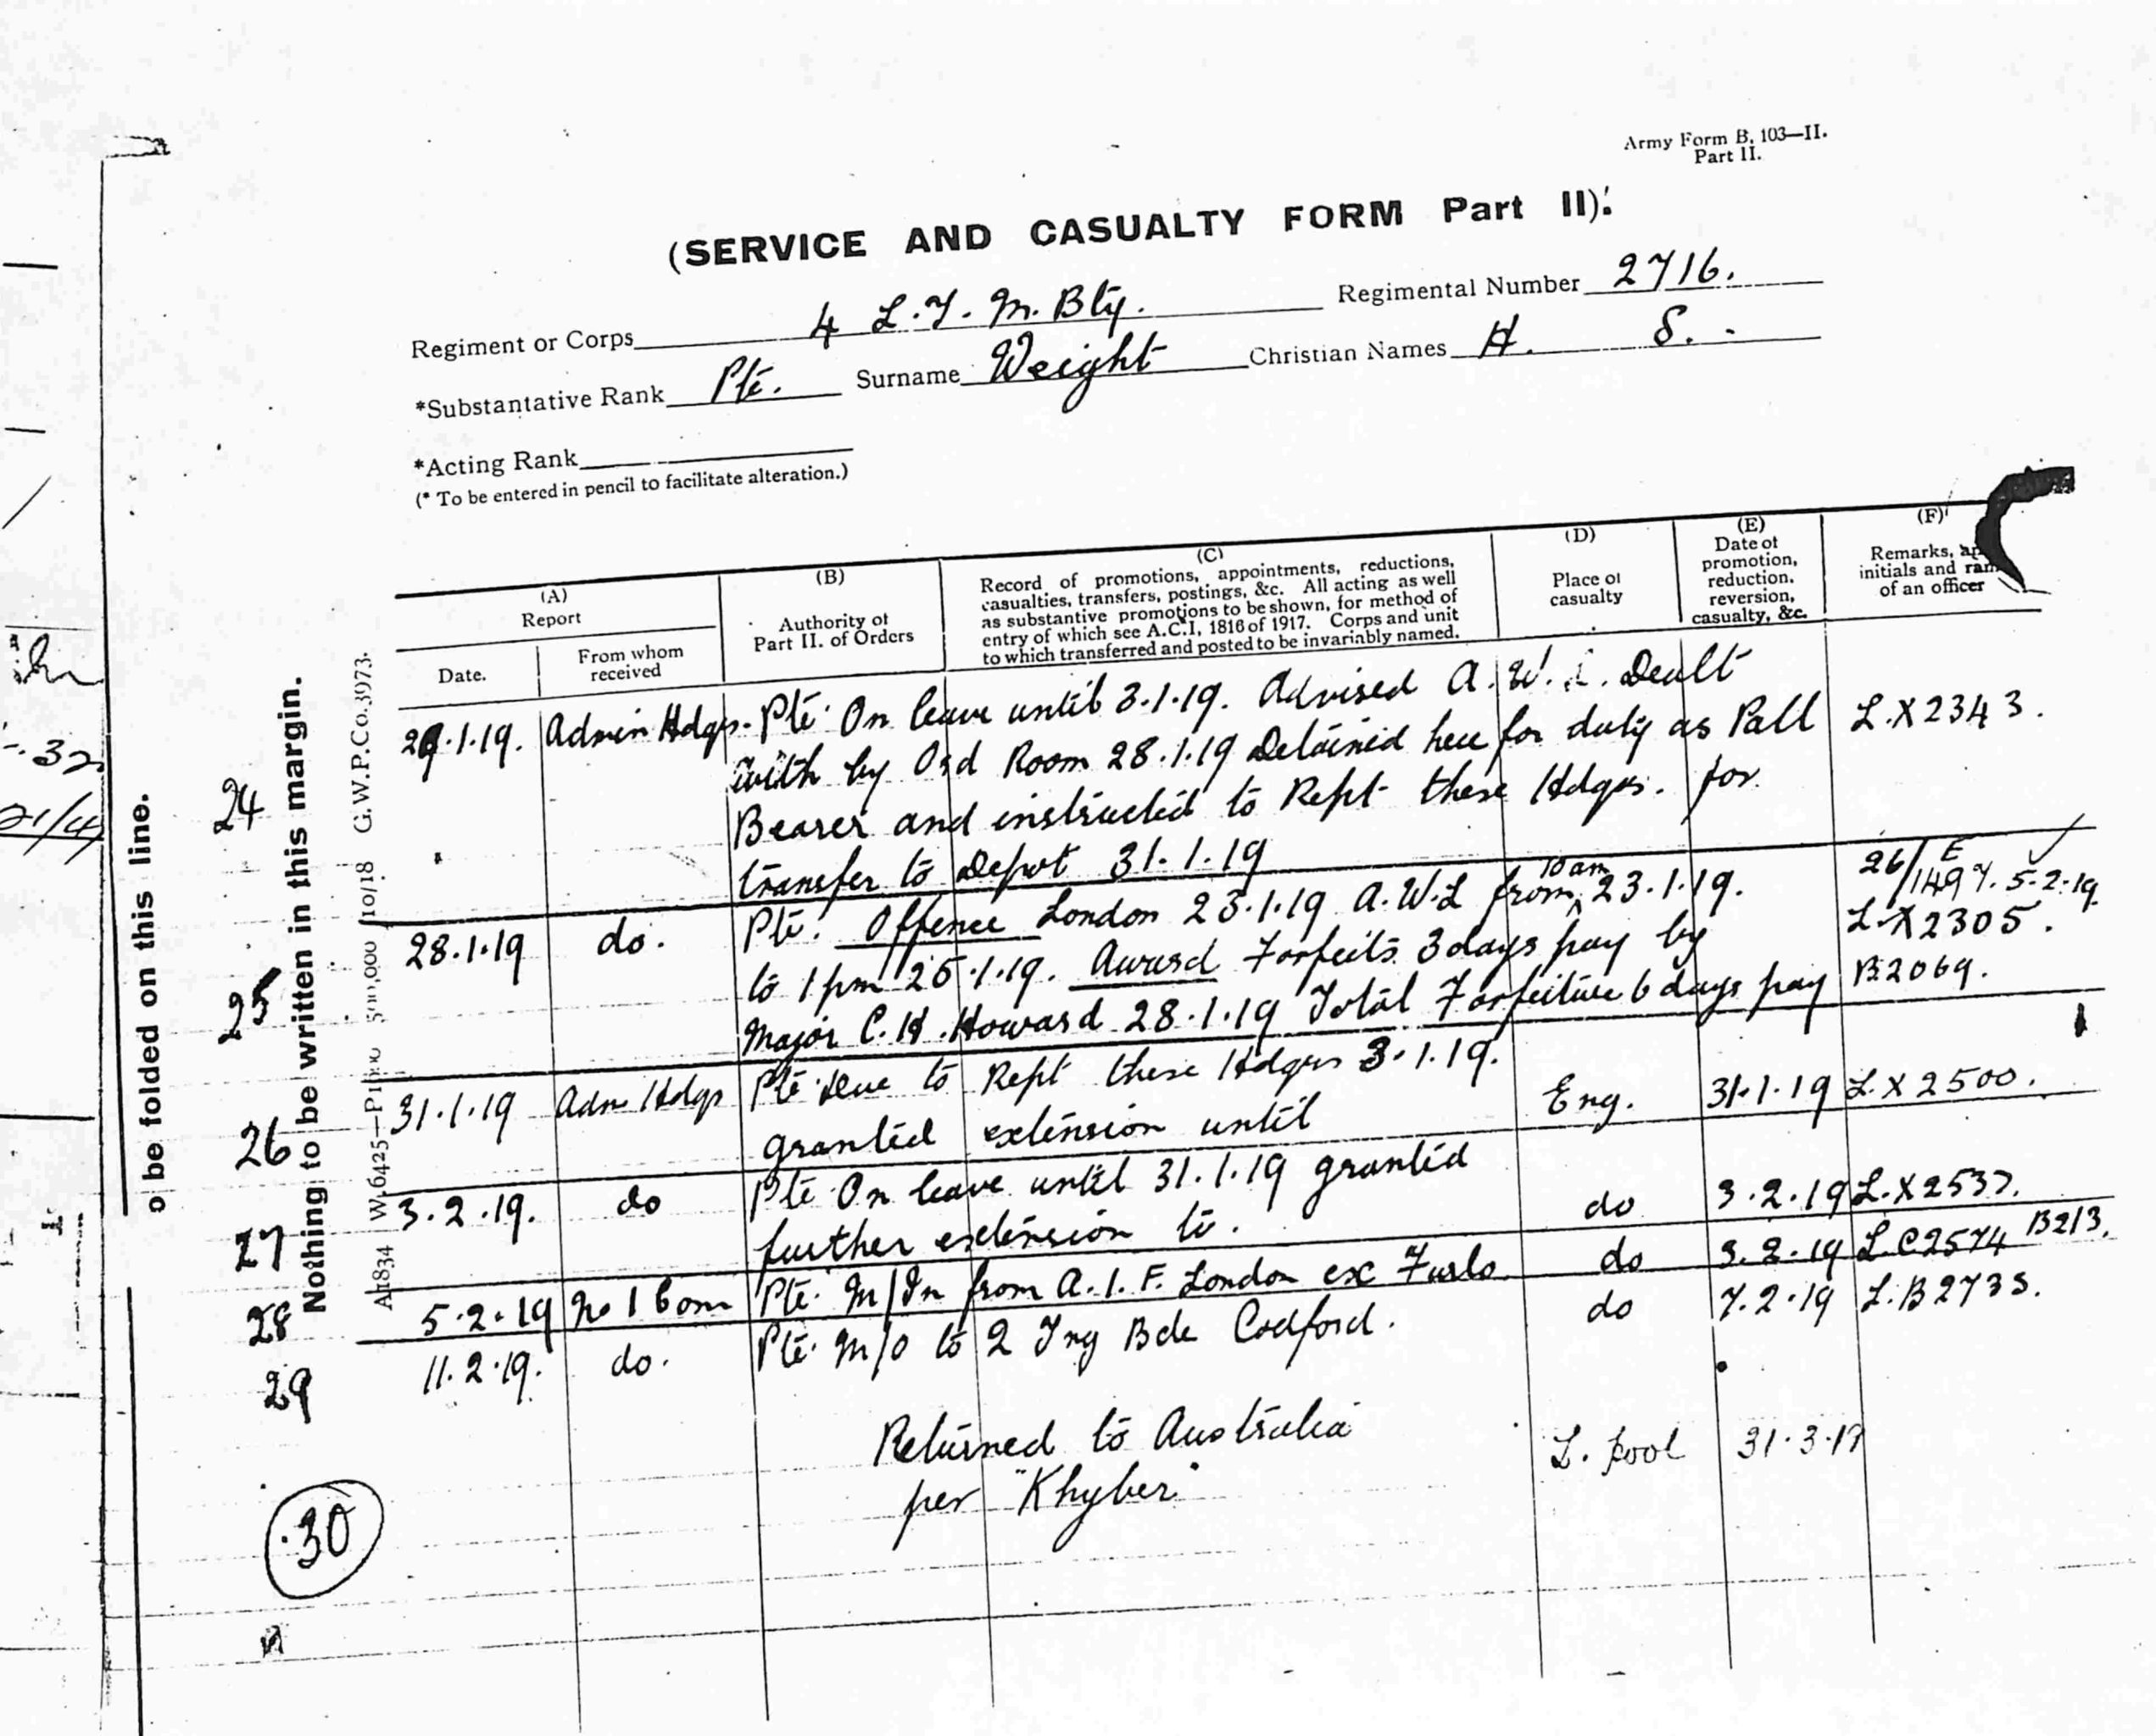 Army Form B. 103—II.
Part II.
(SERVICE AND CASUALTY FORM Part II).
Regiment or Corps 4 L.T.M. Bty. Regimental Number 2716.
*Substantative Rank Pte. Surname Weight Christian Names H. S.
*Acting Rank
(* To be entered in pencil to facilitate alteration.)
(A)
Report
Date.
From whom
received
(B)
Authority of
Part II. of Orders
(C)
Record of promotions, appointments, reductions,
casualties, transfers, postings, &c. All acting as well
as substantive promotions to be shown, for method of
entry of which see A.C.I, 1816 of 1917. Corps and unit
to which transferred and posted to be invariably named.
(D)
Place of
casualty
(E)
Date of
promotion,
reduction,
reversion,
casualty, &c.
(F)
Remarks,
initials and
of an officer
24
29.1.19. Admin Hdqrs. Pte. On leave until 3.1.19. Advised A.W.L. Dealt
with by Ord Room 28.1.19 Detained here for duty as Pall L.X2343.
Bearer and instructed to Rept these Hdqrs. for
transfer to Depot 31.1.19
25
28.1.19 do. Pte. Offence London 23.1.19 A.W.L from 10 am 23.1.19. 26/E/1497. 5.2.19.
to 1 pm 25.1.19. Award Forfeits 3 days pay by L.X2305.
Major C.H. Howard 28.1.19 Total Forfeiture 6 days pay B2069.
26
31.1.19 Adm Hdqs Pte Due to Rept these Hdqrs 3.1.19.
granted extension until Eng. 31.1.19 L.X2500.
27
3.2.19. do Pte On leave until 31.1.19 granted
further extension to. do 3.2.19 L.X2537.
28
5.2.19 No 1 Com Pte. M/In from A.I.F. London exc Furlo do 3.2.19 L.C2574 B213.
29
11.2.19. do. Pte. M/O to 2 Tng Bde Codford. do 7.2.19 L.B2735.
Returned to Australia
per "Khyber" L.pool 31.3.19
30
o be folded on this line.
Nothing to be written in this margin.
10/18 G.W.P.Co.3973.
-.32
21/4